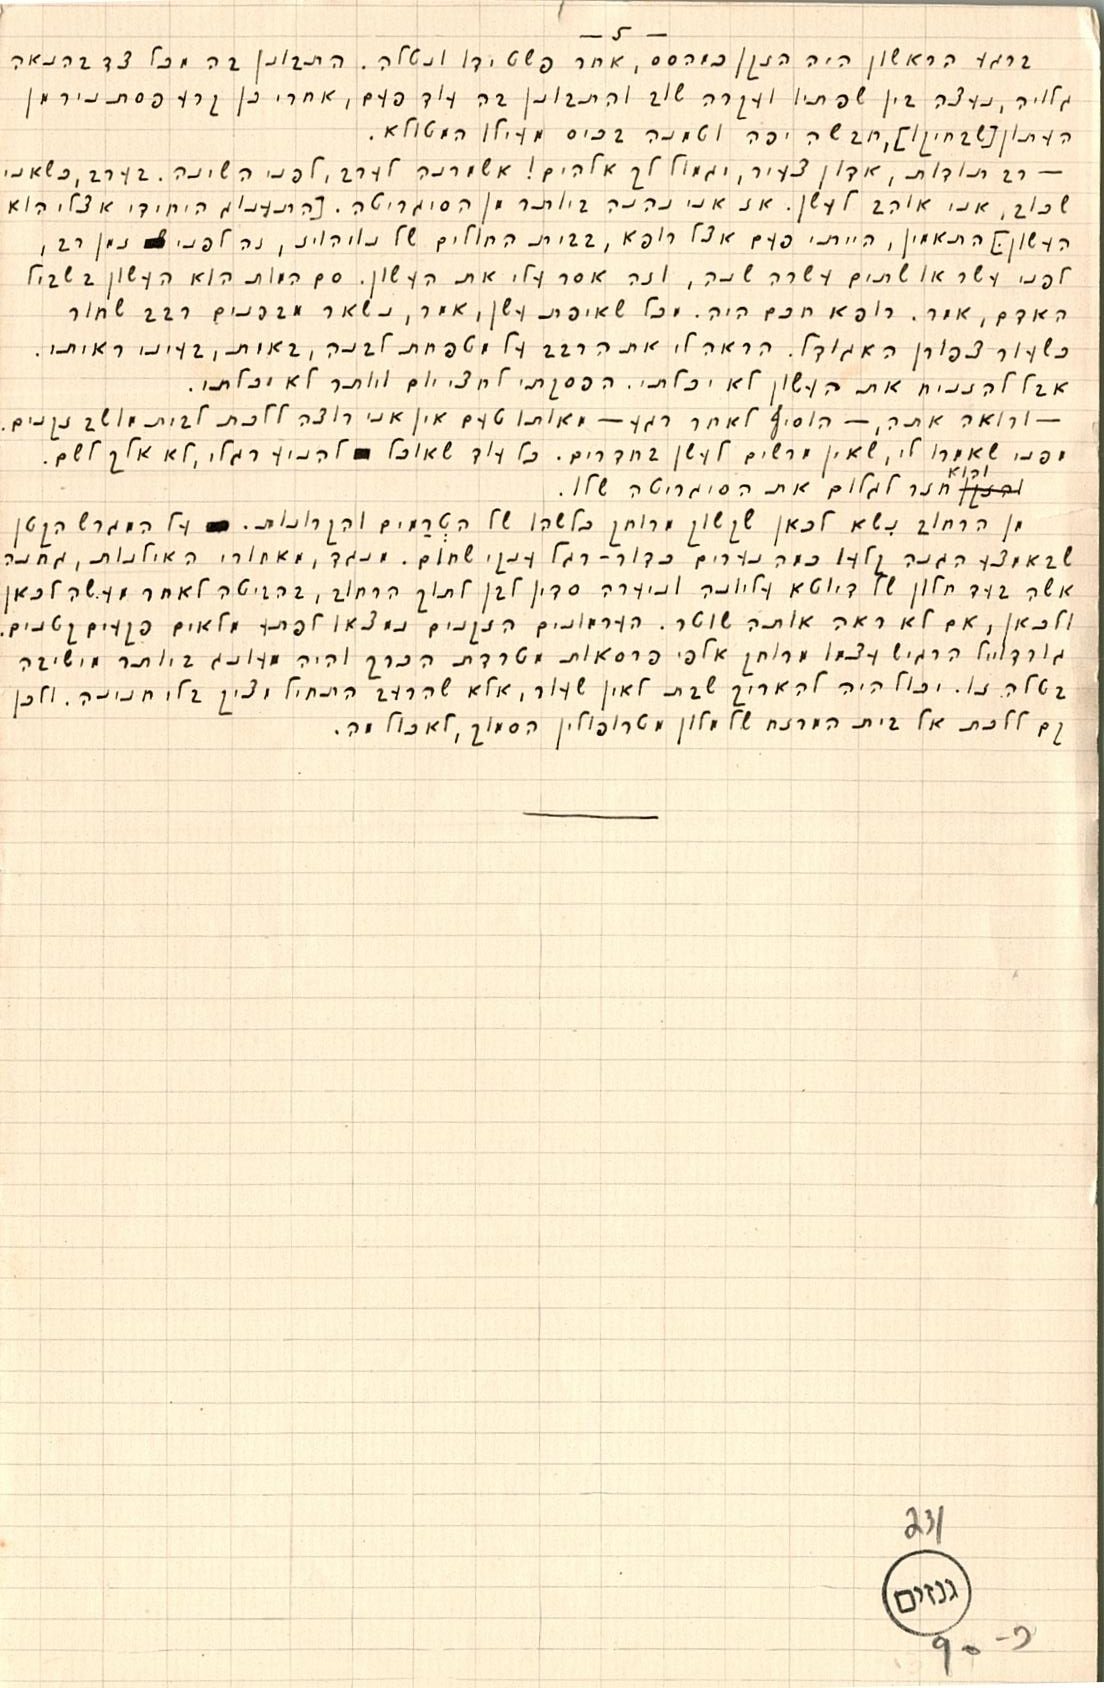 — 5 —
ברגע הראשון היה הזקן כמהסס, אחר פשט ידו ונטלה. התבונן בה מכל צד בהנאה
גלויה, נעצה בין שפתיו ועקרה שוב והתבונן בה עוד פעם, אחרי כן קרע פסת נייר מן
העתון [שבחיקו], חבשה יפה וטמנה בכיס מעילו המטולא.
— רב תודות, אדון צעיר, יגמול לך אלהים! אשמרנה לערב, לפני השינה. בערב, כשאני
שכוב, אני אוהב לעשן. אז אני נהנה ביותר מן הסיגריטה. [התענוג היחידי אצלי הוא
העשון.] התאמין, הייתי פעם אצל רופא, בבית החולים של נויהויז, זה לפני זמן רב,
לפני עשר או שתים עשרה שנה, וזה אסר עלי את העשון. סם המות הוא העשון בשביל
האדם, אמר. רופא חכם היה. מכל שאיפת עשן, אמר, נשאר מבפנים רבב שחור
כשעור צפורן האגודל. הראה לי את הרבב על מטפחת לבנה, באות, בעיני ראיתי.
אבל להנניח את העשון לא יכלתי. הפסקתי לחצי יום ויותר לא יכלתי.
— ורואה אתה, — הוסיף לאחר רגע — מאותו טעם אין אני רוצה ללכת לבית מושב זקנים.
מפני שאמרו לי, שאין מרשים לעשן בחדרים. כל עוד שאוכל להניע רגלי, לא אלך לשם.
והוא
והזקן חזר לגלום את הסיגריטה שלו.
מן הרחוב נִשא לכאן שקשוק מרוחק כלשהו של הטְרַמים והקרונות. על המגרש הקטן
שבאמצע הגנה קלעו כמה נערים כדור-רגל ענקי שחום. מנגד, מאחורי האילנות, גחנה
אשה בעד חלון של דיוטא עליונה וניערה סדין לבן לתוך הרחוב, בהביטה לאחר מעשה לכאן
ולכאן, אם לא ראה אותה שוטר. הערמונים הזקנים נמצאו לפתע מלאים פקעים קטנים.
גורדווייל הרגיש עצמו מרוחק אלפי פרסאות מטרדת הכרך והיה מעונג ביותר מישיבה
בטלה זו. יכול היה להאריך שבת לאין שעור, אלא שהרעב התחיל מציק בלי חנינה. ולכן
קם ללכת אל בית המרזח של מלון מטרופולין הסמוך, לאכול מה.
231
גנזים
פ-90